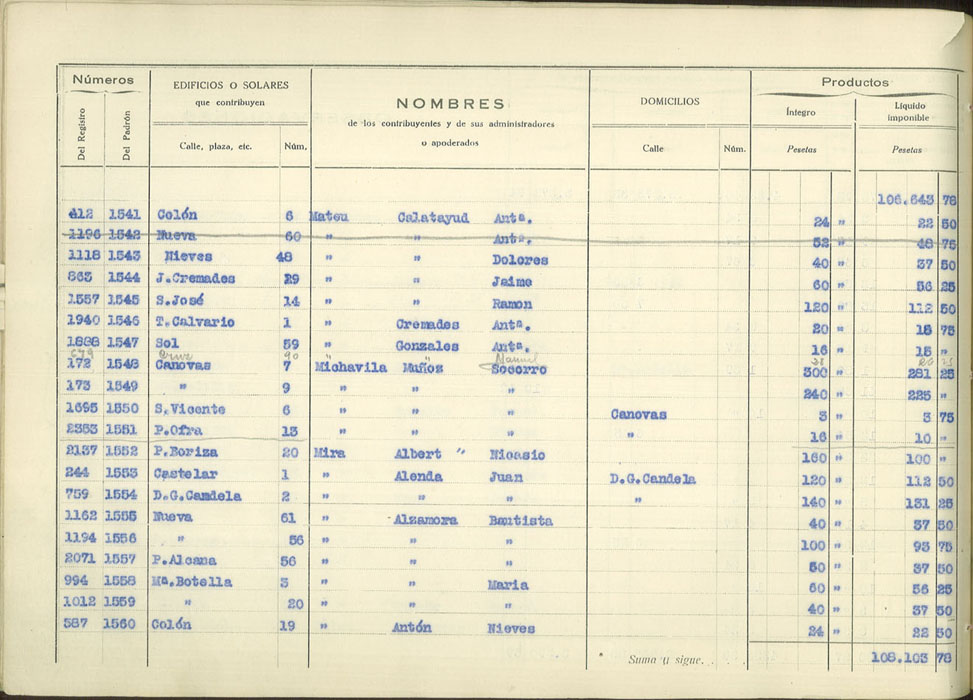 Números EDIFICIOS O SOLARES NOMBRES DOMICILIOS Productos
que contribuyen de los contribuyentes y de sus administradores Íntegro Líquido imponible
Del Registro Del Padrón Calle, plaza, etc. Núm. o apoderados Calle Núm. Pesetas Pesetas
106.643 78
412 1541 Colón 6 Mateu Calatayud Antª. 24 " 22 50
1196 1542 Nueva 60 " " Antª. 52 " 48 75
1118 1543 Nieves 48 " " Dolores 40 " 37 50
863 1544 J.Cremades 29 " " Jaime 60 " 56 25
1557 1545 S.José 14 " " Ramon 120 " 112 50
1940 1546 T.Calvario 1 " Cremades Antª. 20 " 18 75
1888 1547 Sol 59 " Gonzales Antª. 16 " 15 "
Cruz 90 " " Manuel
172 1548 Canovas 7 Michavila Muñoz Socorro 300 " 281 25
173 1549 " 9 " " " 240 " 225 "
1695 1550 S.Vicente 6 " " " Canovas 3 " 3 75
2353 1551 P.Ofra 13 " " " " 16 " 10 "
2137 1552 P.Boriza 20 Mira Albert " Nicasio 160 " 100 "
244 1553 Castelar 1 " Alenda Juan D.G.Candela 120 " 112 50
759 1554 D.G.Candela 2 " " " " 140 " 131 25
1162 1555 Nueva 61 " Alzamora Bautista 40 " 37 50
1194 1556 " 56 " " " 100 " 93 75
2071 1557 P.Alcana 56 " " " 60 " 37 50
994 1558 Mª.Botella 3 " " Maria 60 " 56 25
1012 1559 " 20 " " " 40 " 37 50
587 1560 Colón 19 " Antón Nieves 24 " 22 50
Suma y sigue. . 108.103 78